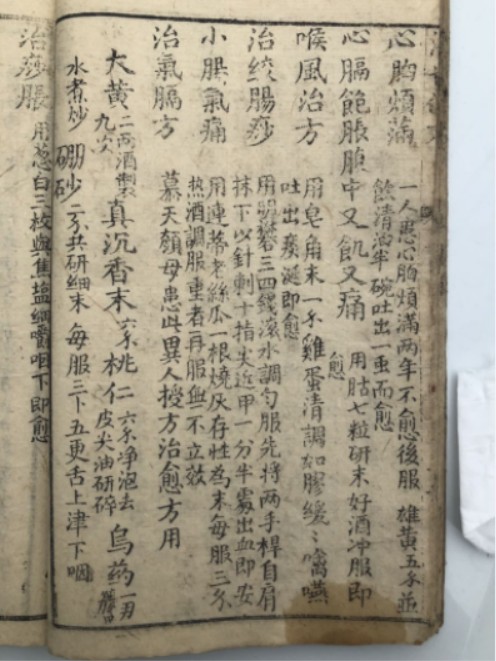 心胸煩滿
一人患心胸煩滿兩年不愈後服 雄黄五分並
飲清油半碗吐出一虫而愈
心膈飽脹 中又飢又痛 用 七粒研末好酒冲服即
愈
喉風治方
用皂角末一分雞蛋清調如膠緩〻噙嚥
吐出痰涎即愈
治絞腸痧
用明礬三四錢滚水調勻服先將兩手桿自肩
抹下以針刺十指尖近甲一分半處出血即安
小腸氣痛
用連蒂老絲瓜一根燒灰存性為末每服三分
热酒調服重者再服無不立效
治氣膈方
慕天顏母患此異人授方治愈方用
大黄 二兩酒製九次 真沉香末 六分 桃仁 二六分净泡去皮尖油研碎 烏药 一刃
水煮炒 硼砂 二分共研細末 每服三卜五更舌上津下咽
治痧脹
用葱白三枚與焦塩細嚼咽下即愈